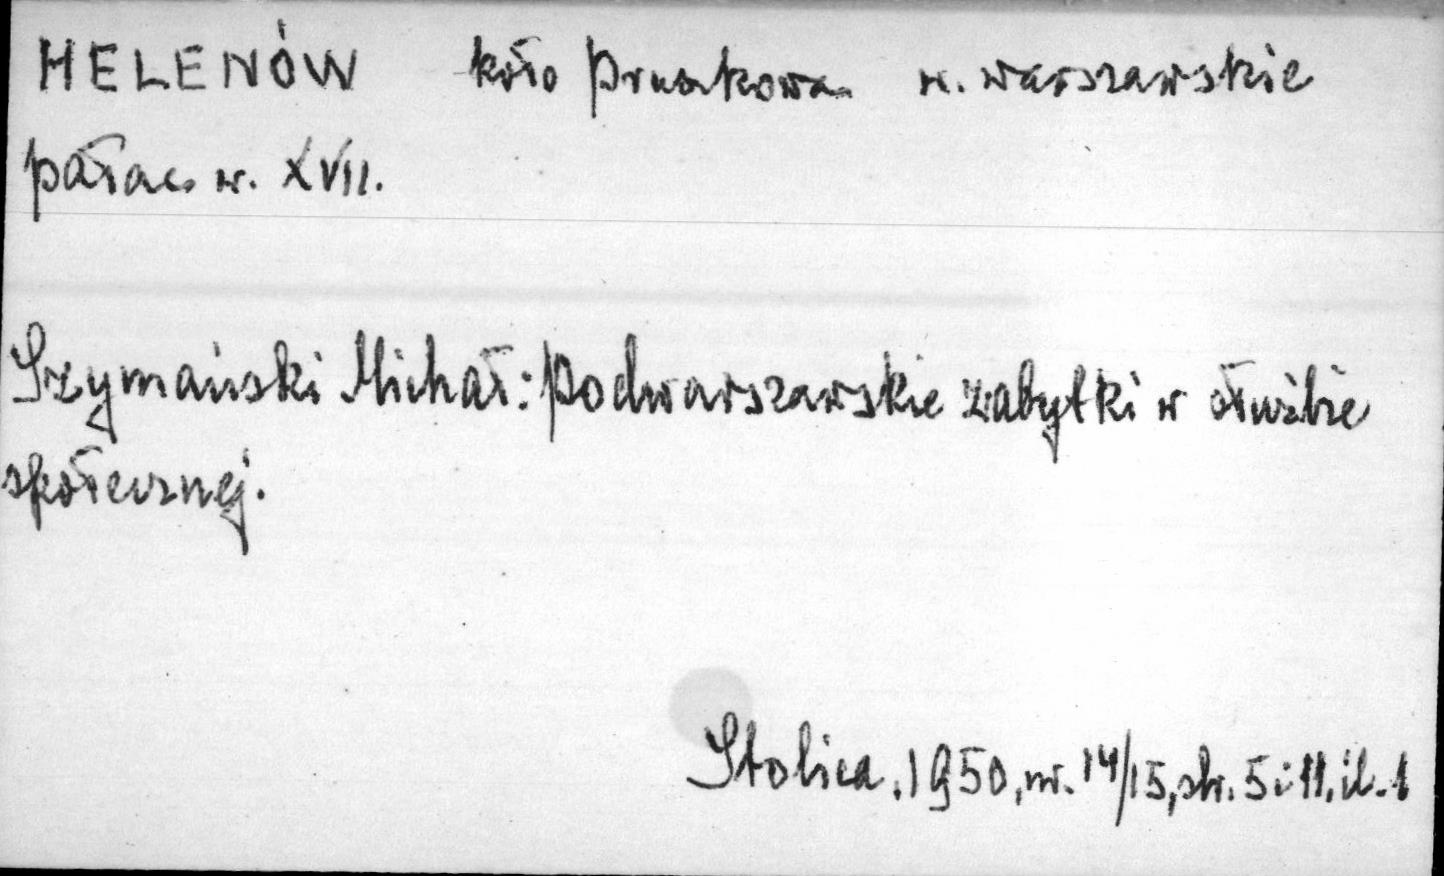 HELENÓW koło Pruszkowa w. warszawskie
pałac w. XVII.
Szymański Michał: Podwarszawskie zabytki w służbie
społecznej.
Stolica, 1950, nr. 14/15, str. 5 i 11, il. 1